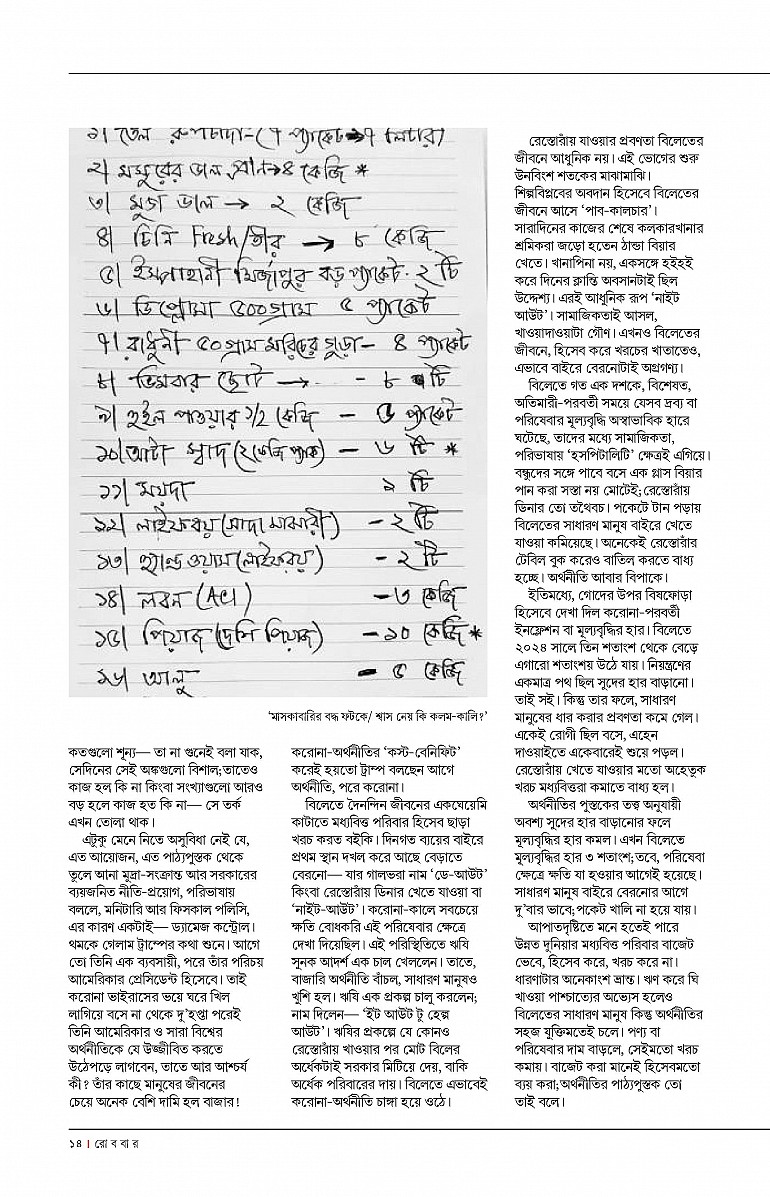 ১) তেল রুপচাঁদা-(৭ প্যাকেট ৭ লিটার)
২) মসুরের ডাল প্রান→৪ কেজি *
৩) মুগ ডাল → ২ কেজি
৪) চিনি Fresh/তীর → ৮ কেজি
৫) ইসপাহানী মির্জাপুর বড় প্যাকেট- ২ টি
৬) ডিপ্লোমা ৫০০গ্রাম ৫ প্যাকেট
৭) রাধুনী ৫০গ্রাম মরিচের গুড়া- ৪ প্যাকেট
৮) ভিমবার ছোট → - ৮ টি
৯) হুইল পাওয়ার ১/২ কেজি - ৬ প্যাকেট
১০) আটা স্বাদ (২কেজি প্যাক) - ৬ টি *
১১) ময়দা ২ টি
১২) লাইফবয় (সাদা মাঝারী) - ২ টি
১৩) হ্যান্ড ওয়াস (লাইফবয়) - ২ টি
১৪) লবন (ACI) - ৩ কেজি
১৫) পিয়াজ (দেশি পিয়াজ) - ১০ কেজি *
১৬) আলু - ৫ কেজি
‘মাসকাবারির বদ্ধ ফটকে/ শ্বাস নেয় কি কলম-কালি?’
কতগুলো শূন্য— তা না গুনেই বলা যাক,
সেদিনের সেই অঙ্কগুলো বিশাল; তাতেও
কাজ হল কি না কিংবা সংখ্যাগুলো আরও
বড় হলে কাজ হত কি না— সে তর্ক
এখন তোলা থাক।
এটুকু মেনে নিতে অসুবিধা নেই যে,
এত আয়োজন, এত পাঠ্যপুস্তক থেকে
তুলে আনা মুদ্রা-সংক্রান্ত আর সরকারের
ব্যয়জনিত নীতি-প্রয়োগ, পরিভাষায়
বললে, মনিটারি আর ফিসকাল পলিসি,
এর কারণ একটাই— ড্যামেজ কন্ট্রোল।
থমকে গেলাম ট্রাম্পের কথা শুনে। আগে
তো তিনি এক ব্যবসায়ী, পরে তাঁর পরিচয়
আমেরিকার প্রেসিডেন্ট হিসেবে। তাই
করোনা ভাইরাসের ভয়ে ঘরে খিল
লাগিয়ে বসে না থেকে দু’হপ্তা পরেই
তিনি আমেরিকার ও সারা বিশ্বের
অর্থনীতিকে যে উজ্জীবিত করতে
উঠেপড়ে লাগবেন, তাতে আর আশ্চর্য
কী? তাঁর কাছে মানুষের জীবনের
চেয়ে অনেক বেশি দামি হল বাজার!
করোনা-অর্থনীতির ‘কস্ট-বেনিফিট’
করেই হয়তো ট্রাম্প বলছেন আগে
অর্থনীতি, পরে করোনা।
বিলেতে দৈনন্দিন জীবনের একঘেয়েমি
কাটাতে মধ্যবিত্ত পরিবার হিসেব ছাড়া
খরচ করত বইকি। দিনগত ব্যয়ের বাইরে
প্রথম স্থান দখল করে আছে বেড়াতে
বেরনো— যার গালভরা নাম ‘ডে-আউট’
কিংবা রেস্তোরাঁয় ডিনার খেতে যাওয়া বা
‘নাইট-আউট’। করোনা-কালে সবচেয়ে
ক্ষতি বোধকরি এই পরিষেবার ক্ষেত্রে
দেখা দিয়েছিল। এই পরিস্থিতিতে ঋষি
সুনক আদর্শ এক চাল খেললেন। তাতে,
বাজারি অর্থনীতি বাঁচল, সাধারণ মানুষও
খুশি হল। ঋষি এক প্রকল্প চালু করলেন;
নাম দিলেন— ‘ইট আউট টু হেল্প
আউট’। ঋষির প্রকল্পে যে কোনও
রেস্তোরাঁয় খাওয়ার পর মোট বিলের
অর্ধেকটাই সরকার মিটিয়ে দেয়, বাকি
অর্ধেক পরিবারের দায়। বিলেতে এভাবেই
করোনা-অর্থনীতি চাঙ্গা হয়ে ওঠে।
রেস্তোরাঁয় যাওয়ার প্রবণতা বিলেতের
জীবনে আধুনিক নয়। এই ভোগের শুরু
উনবিংশ শতকের মাঝামাঝি।
শিল্পবিপ্লবের অবদান হিসেবে বিলেতের
জীবনে আসে ‘পাব-কালচার’।
সারাদিনের কাজের শেষে কলকারখানার
শ্রমিকরা জড়ো হতেন ঠান্ডা বিয়ার
খেতে। খানাপিনা নয়, একসঙ্গে হইহই
করে দিনের ক্লান্তি অবসানটাই ছিল
উদ্দেশ্য। এরই আধুনিক রূপ ‘নাইট
আউট’। সামাজিকতাই আসল,
খাওয়াদাওয়াটা গৌণ। এখনও বিলেতের
জীবনে, হিসেব করে খরচের খাতাতেও,
এভাবে বাইরে বেরনোটাই অগ্রগণ্য।
বিলেতে গত এক দশকে, বিশেষত,
অতিমারী-পরবর্তী সময়ে যেসব দ্রব্য বা
পরিষেবার মূল্যবৃদ্ধি অস্বাভাবিক হারে
ঘটেছে, তাদের মধ্যে সামাজিকতা,
পরিভাষায় ‘হসপিটালিটি’ ক্ষেত্রই এগিয়ে।
বন্ধুদের সঙ্গে পাবে বসে এক গ্লাস বিয়ার
পান করা সস্তা নয় মোটেই; রেস্তোরাঁয়
ডিনার তো তথৈবচ। পকেটে টান পড়ায়
বিলেতের সাধারণ মানুষ বাইরে খেতে
যাওয়া কমিয়েছে। অনেকেই রেস্তোরাঁর
টেবিল বুক করেও বাতিল করতে বাধ্য
হচ্ছে। অর্থনীতি আবার বিপাকে।
ইতিমধ্যে, গোদের উপর বিষফোড়া
হিসেবে দেখা দিল করোনা-পরবর্তী
ইনফ্লেশন বা মূল্যবৃদ্ধির হার। বিলেতে
২০২৪ সালে তিন শতাংশ থেকে বেড়ে
এগারো শতাংশয় উঠে যায়। নিয়ন্ত্রণের
একমাত্র পথ ছিল সুদের হার বাড়ানো।
তাই সই। কিন্তু তার ফলে, সাধারণ
মানুষের ধার করার প্রবণতা কমে গেল।
একেই রোগী ছিল বসে, এহেন
দাওয়াইতে একেবারেই শুয়ে পড়ল।
রেস্তোরাঁয় খেতে যাওয়ার মতো অহেতুক
খরচ মধ্যবিত্তরা কমাতে বাধ্য হল।
অর্থনীতির পুস্তকের তত্ত্ব অনুযায়ী
অবশ্য সুদের হার বাড়ানোর ফলে
মূল্যবৃদ্ধির হার কমল। এখন বিলেতে
মূল্যবৃদ্ধির হার ৩ শতাংশ; তবে, পরিষেবা
ক্ষেত্রে ক্ষতি যা হওয়ার আগেই হয়েছে।
সাধারণ মানুষ বাইরে বেরনোর আগে
দু’বার ভাবে; পকেট খালি না হয়ে যায়।
আপাতদৃষ্টিতে মনে হতেই পারে
উন্নত দুনিয়ার মধ্যবিত্ত পরিবার বাজেট
ভেবে, হিসেব করে, খরচ করে না।
ধারণাটার অনেকাংশ ভ্রান্ত। ঋণ করে ঘি
খাওয়া পাশ্চাত্যের অভ্যেস হলেও
বিলেতের সাধারণ মানুষ কিন্তু অর্থনীতির
সহজ যুক্তিমতেই চলে। পণ্য বা
পরিষেবার দাম বাড়লে, সেইমতো খরচ
কমায়। বাজেট করা মানেই হিসেবমতো
ব্যয় করা; অর্থনীতির পাঠ্যপুস্তক তো
তাই বলে।
১৪ | রো ব বা র